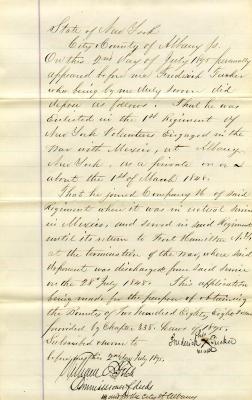 State of New York
City & County of Albany ss.
On this 2nd day of July 1895 personally
appeared before me Frederick Tucker
who being by me duly sworn did
depose as follows. That he was
Enlisted in the 1st Regiment of
New York Volunteers Engaged in the
War with Mexico, at Albany
New York, as a private on or
about the 1st of March 1848.
That he joined Company of said
Regiment when it was in actual service
in Mexico, and served in said Regiment
until its return to Fort Hamilton N.Y.
at the termination of the war, where said
deponent was discharged from said service
on the 28th July 1848. This application
being made for the purpose of obtaining
the Bounty of Two hundred Eighty Eight
provided by Chapter 338. Laws of 1895.
Subscribed & sworn to
before me this 2nd day July 1895.
his
Frederick X Tucker
mark
Commissioner of deeds
in and for the City of Albany